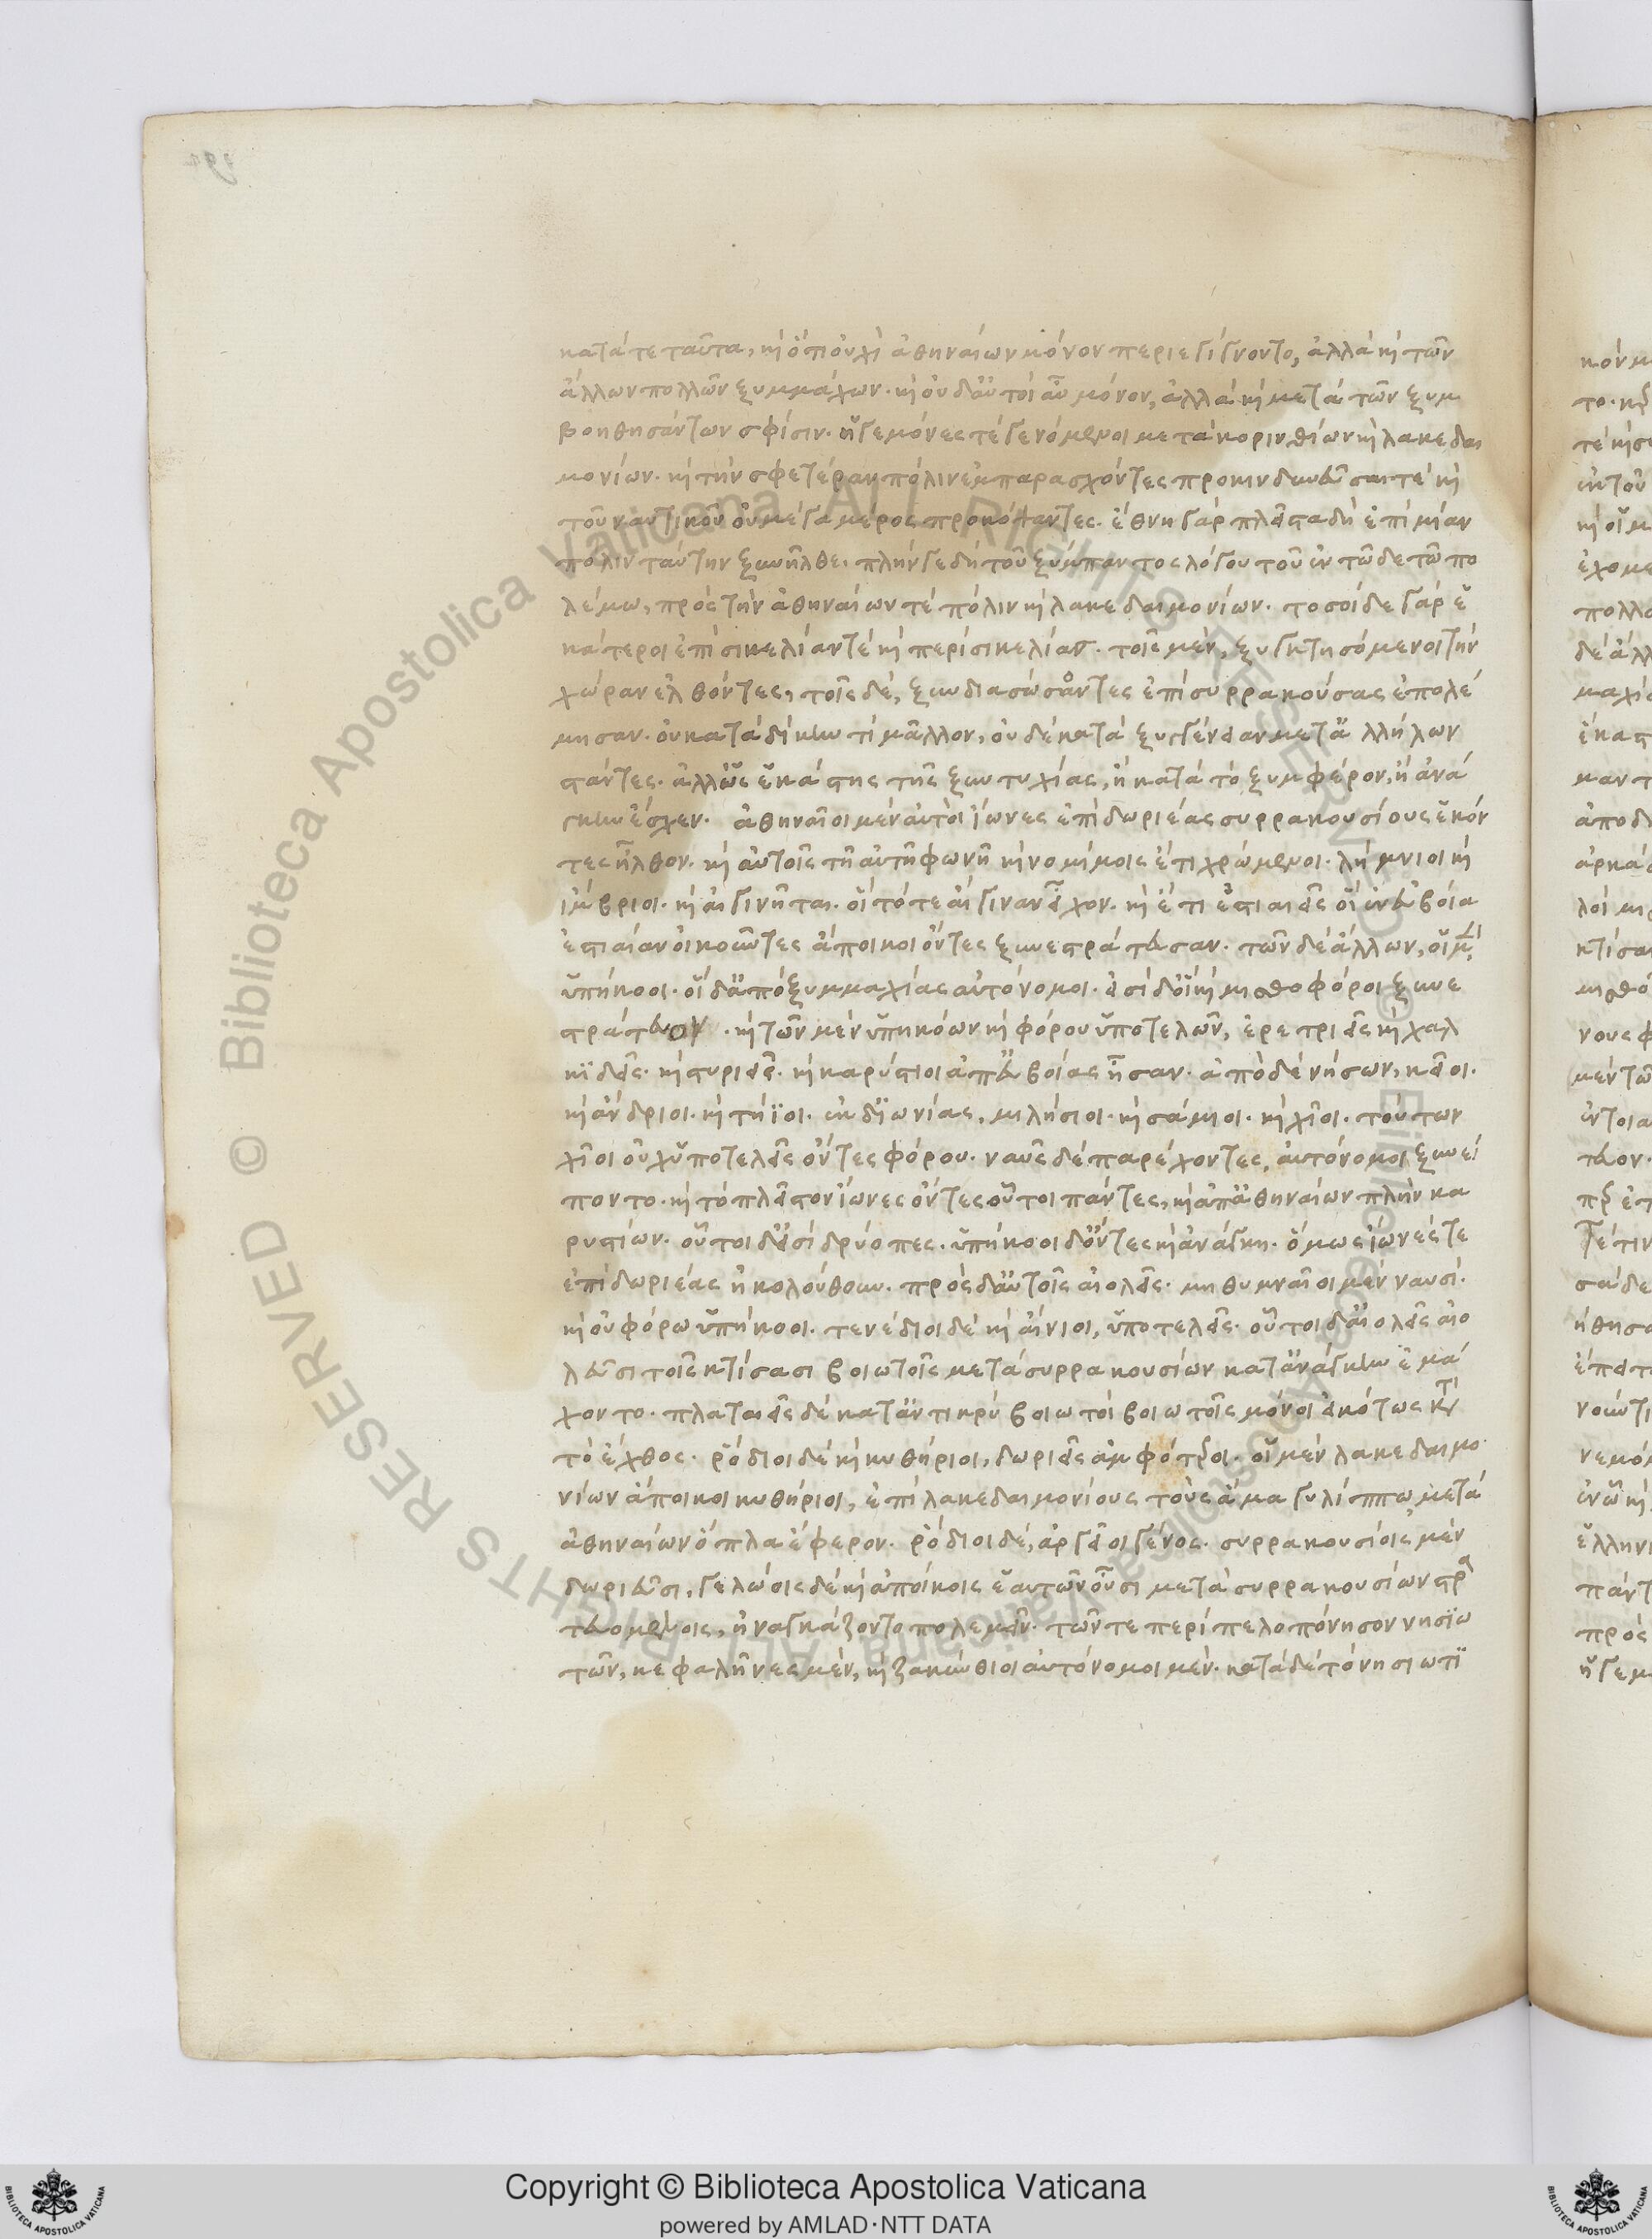 κατά τε ταῦτα, καὶ ὅτι οὐχὶ ἀθηναίων μόνον περιεγίγνοντο, ἀλλὰ καὶ τῶν
ἄλλων πολλῶν ξυμμάχων. καὶ οὐδ' αὐτοὶ αὖ μόνον, ἀλλὰ καὶ μετὰ τῶν ξυμ
βοηθησάντων σφίσιν. ἡγεμόνες τε γενόμενοι μετὰ κορινθίων καὶ λακεδαι
μονίων. καὶ τὴν σφετέραν πόλιν ἐμπαρασχόντες προκινδυνεῦσαι τε καὶ
τοῦ ναυτικοῦ οὐ μέγα μέρος προκόψαντες. ἔθνη γὰρ πλεῖστα δὴ ἐπὶ μίαν
πόλιν ταύτην ξυνῆλθε. πλήν γε δὴ τοῦ ξύμπαντος λόγου τοῦ ἐν τῶδε τῶ πο
λέμω, πρὸς τὴν ἀθηναίων τὲ πόλιν καὶ λακεδαιμονίων. τοσοίδε γὰρ ἑ
κάτεροι ἐπὶ σικελίαν τὲ καὶ περὶ σικελίας. τοῖς μὲν, ξυγκτησόμενοι τὴν
χώραν ἐλθόντες, τοῖς δὲ, ξυνδιασώσοντες ἐπὶ συρρακούσας ἐπολέ
μησαν. οὐ κατὰ δίκην τι μᾶλλον, οὐδὲ κατὰ ξυγγένειαν μετ' ἀλλήλων
στάντες. ἀλλ' ὡς ἑκάστης τῆς ξυντυχίας, ἢ κατὰ τὸ ξυμφέρον, ἢ ἀνά
γκην ἔσχεν. ἀθηναῖοι μὲν αὐτοὶ ἴωνες ἐπὶ δωριέας συρρακουσίους ἑκόν
τες ἦλθον. καὶ αὐτοῖς τῆ αὐτῆ φωνῆ καὶ νομίμοις ἔτι χρώμενοι. λήμνιοι καὶ
ἴμβριοι. καὶ αἰγινῆται. οἳ τότε αἴγιναν εἶχον. καὶ ἔτι ἑστιαιεῖς οἱ ἐν εὐβοία
ἑστίαιαν οἰκοῦντες ἄποικοι ὄντες ξυνεστράτευσαν. τῶν δὲ ἄλλων, οἱ μὲν
ὑπήκοοι. οἱ δ' ἀπὸ ξυμμαχίας αὐτόνομοι. εἰσὶ δ' οἳ καὶ μισθοφόροι ξυνε
στράτευον. καὶ τῶν μὲν ὑπηκόων καὶ φόρου ὑποτελῶν, ἐρετριεῖς καὶ χαλ
κιδεῖς. καὶ στυριεῖς. καὶ καρύστιοι ἀπ' εὐβοίας ἦσαν. ἀπὸ δὲ νήσων, κεῖοι.
καὶ ἄνδριοι. καὶ τήϊοι. ἐκ δ' ἰωνίας, μιλήσιοι. καὶ σάμιοι. καὶ χῖοι. τούτων
χῖοι οὐχ ὑποτελεῖς ὄντες φόρου. ναῦς δὲ παρέχοντες, αὐτόνομοι ξυνεί
ποντο. καὶ τὸ πλεῖστον ἴωνες ὄντες οὗτοι πάντες, καὶ ἀπ' ἀθηναίων πλὴν κα
ρυστίων. οὗτοι δ' εἰσὶ δρύοπες. ὑπήκοοι δ' ὄντες καὶ ἀνάγκη. ὅμως ἴωνές τε
ἐπὶ δωριέας ἠκολούθουν. πρὸς δ' αὐτοῖς αἰολεῖς. μηθυμναῖοι μὲν ναυσὶ.
καὶ οὐ φόρω ὑπήκοοι. τενέδιοι δὲ καὶ αἴνιοι, ὑποτελεῖς. οὗτοι δ' αἰολεῖς αἰο
λεῦσι τοῖς κτίσασι βοιωτοῖς μετὰ συρρακουσίων κατ' ἀνάγκην ἐμά
χοντο. πλαταιεῖς δὲ κατ' ἀντικρὺ βοιωτοὶ βοιωτοῖς μόνοι εἰκότως κατὰ
τὸ ἔχθος. ῥόδιοι δὲ καὶ κυθήριοι, δωριεῖς ἀμφότεροι. οἱ μὲν λακεδαιμο
νίων ἄποικοι κυθήριοι, ἐπὶ λακεδαιμονίους τοὺς ἅμα γυλίππω μετὰ
ἀθηναίων ὅπλα ἔφερον. ῥόδιοι δὲ, ἀργεῖοι γένος. συρρακουσίοις μὲν
δωριεῦσι, γελώοις δὲ καὶ ἀποίκοις ἑαυτῶν οὖσι μετὰ συρρακουσίων στρα
τευομένοις, ἠναγκάζοντο πολεμεῖν. τῶν τε περὶ πελοπόνησον νησιω
τῶν, κεφαλῆνες μὲν, καὶ ζακύνθιοι αὐτόνομοι μὲν. κατὰ δὲ τὸ νησιωτι
Copyright © Biblioteca Apostolica Vaticana
powered by AMLAD·NTT DATA